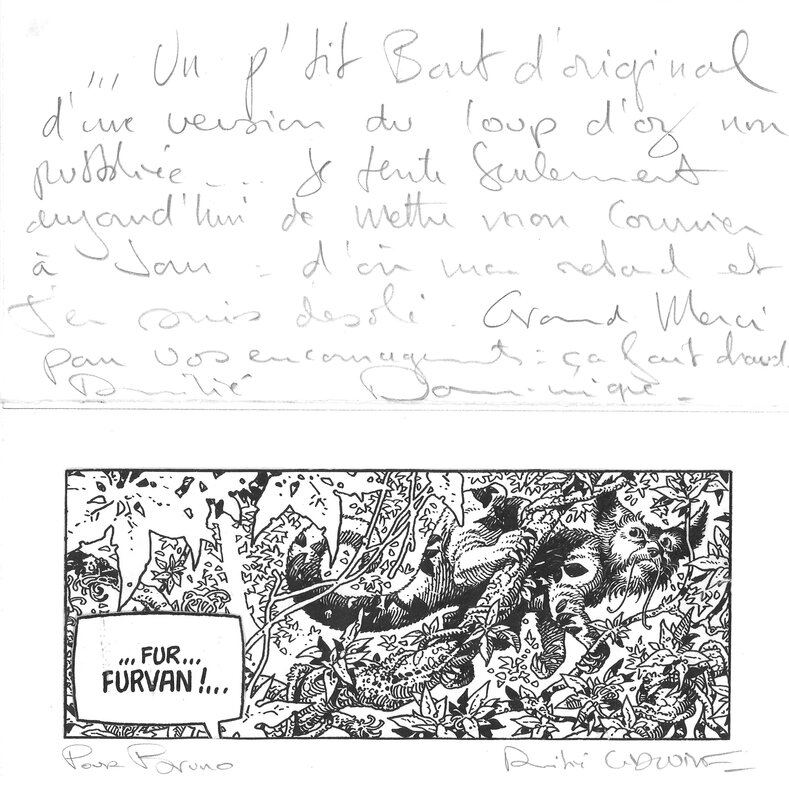 ... Un p'tit Bout d'original
d'une version du loup d'or non
publiée .... Je tente seulement
aujourd'hui de mettre mon courrier
à jour = d'où mon retard et
J'en suis désolé. Grand Merci
pour vos encouragements = ça fait chaud.
Amitié Dominique -
... FUR...
FURVAN!...
Pour Bruno
Amitié